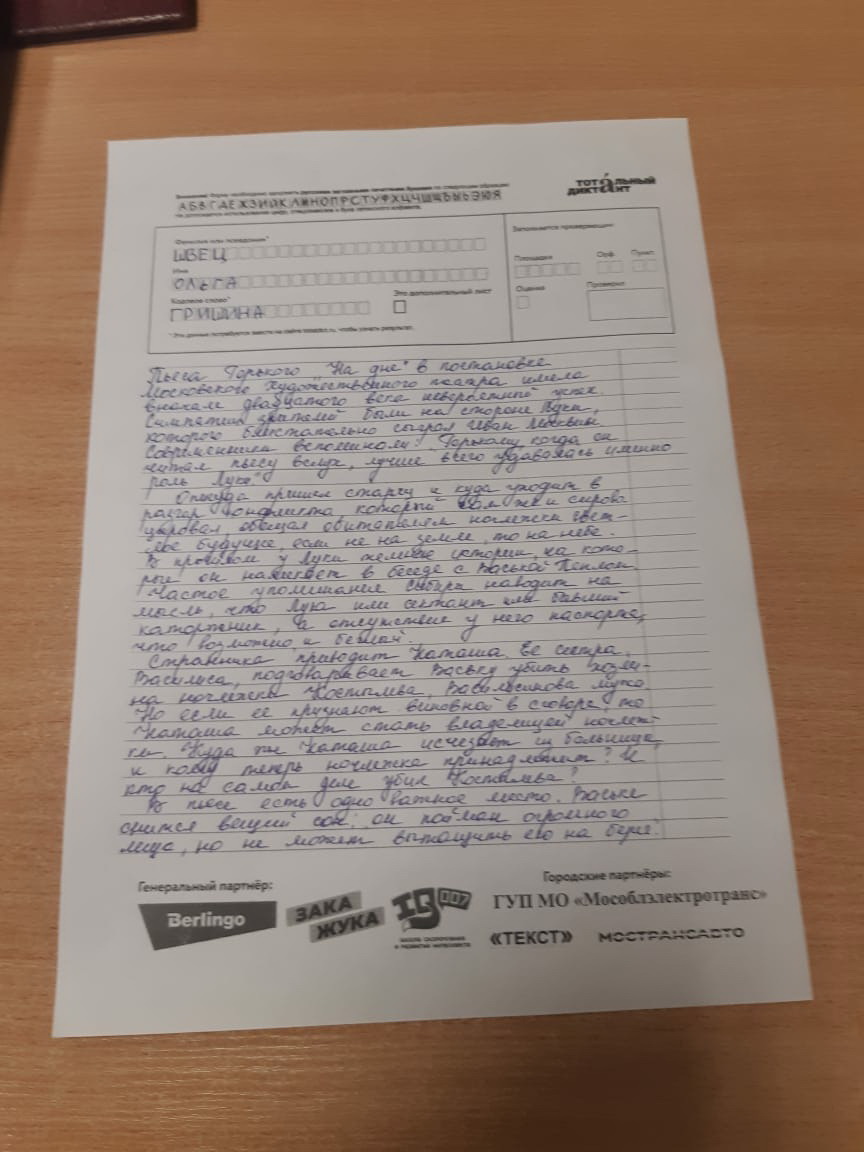 Внимание! Форму необходимо заполнять русскими заглавными печатными буквами по следующим образцам:
АБВГДЕЖЗИЙКЛМНОПРСТУФХЦЧШЩЪЫЬЭЮЯ
ТОТАЛЬНЫЙ
ДИКТАНТ
Фамилия или псевдоним*
ШВЕЦ
Имя
ОЛЬГА
Кодовое слово*
ГРИШИНА
Это дополнительный лист
* Эти данные потребуется ввести на сайте totaldict.ru, чтобы узнать результат.
Заполняется проверяющим:
Площадка
Орф.
Пункт.
Оценка
Проверил
Пьеса Горького „На дне" в постановке
Московского Художественного театра имела
в начале двадцатого века невероятный успех.
Симпатии зрителей были на стороне Луки,
которого блистательно сыграл Иван Москвин.
Современники вспоминали: „Горькому, когда он
читал пьесу вслух, лучше всего удавалась именно
роль Луки".
Откуда пришел старец и куда уходит в
разгар конфликта, который сам же и спрово-
цировал, обещая обитателям ночлежки свет-
лое будущее, если не на земле, то на небе.
В прошлом у Луки темные истории, на кото-
рые он намекает в беседе с Васькой Пеплом.
Частое упоминание Сибири наводит на
мысль, что Лука или сектант или бывший
каторжник, а отсутствие у него паспорта,
что возможно и беглый.
Странника приводит Наташа. Ее сестра,
Василиса, подговаривает Ваську убить хозяи-
на ночлежки Костылева, Василисиного мужа.
Но если ее признают виновной в сговоре, то
Наташа может стать владелицей ночлеж-
ки. Куда же Наташа исчезает из больницы,
и кому теперь ночлежка принадлежит? И
кто на самом деле убил Костылева?
В пьесе есть одно важное место. Ваське
снится вещий сон: он поймал огромного
леща, но не может вытащить его на берег.
Генеральный партнёр:
Berlingo
ЗАКА
ЖУКА
IQ007
ШКОЛА СКОРОЧТЕНИЯ
И РАЗВИТИЯ ИНТЕЛЛЕКТА
Городские партнёры:
ГУП МО «Мособлэлектротранс»
«ТЕКСТ»
МОСТРАНСАВТО